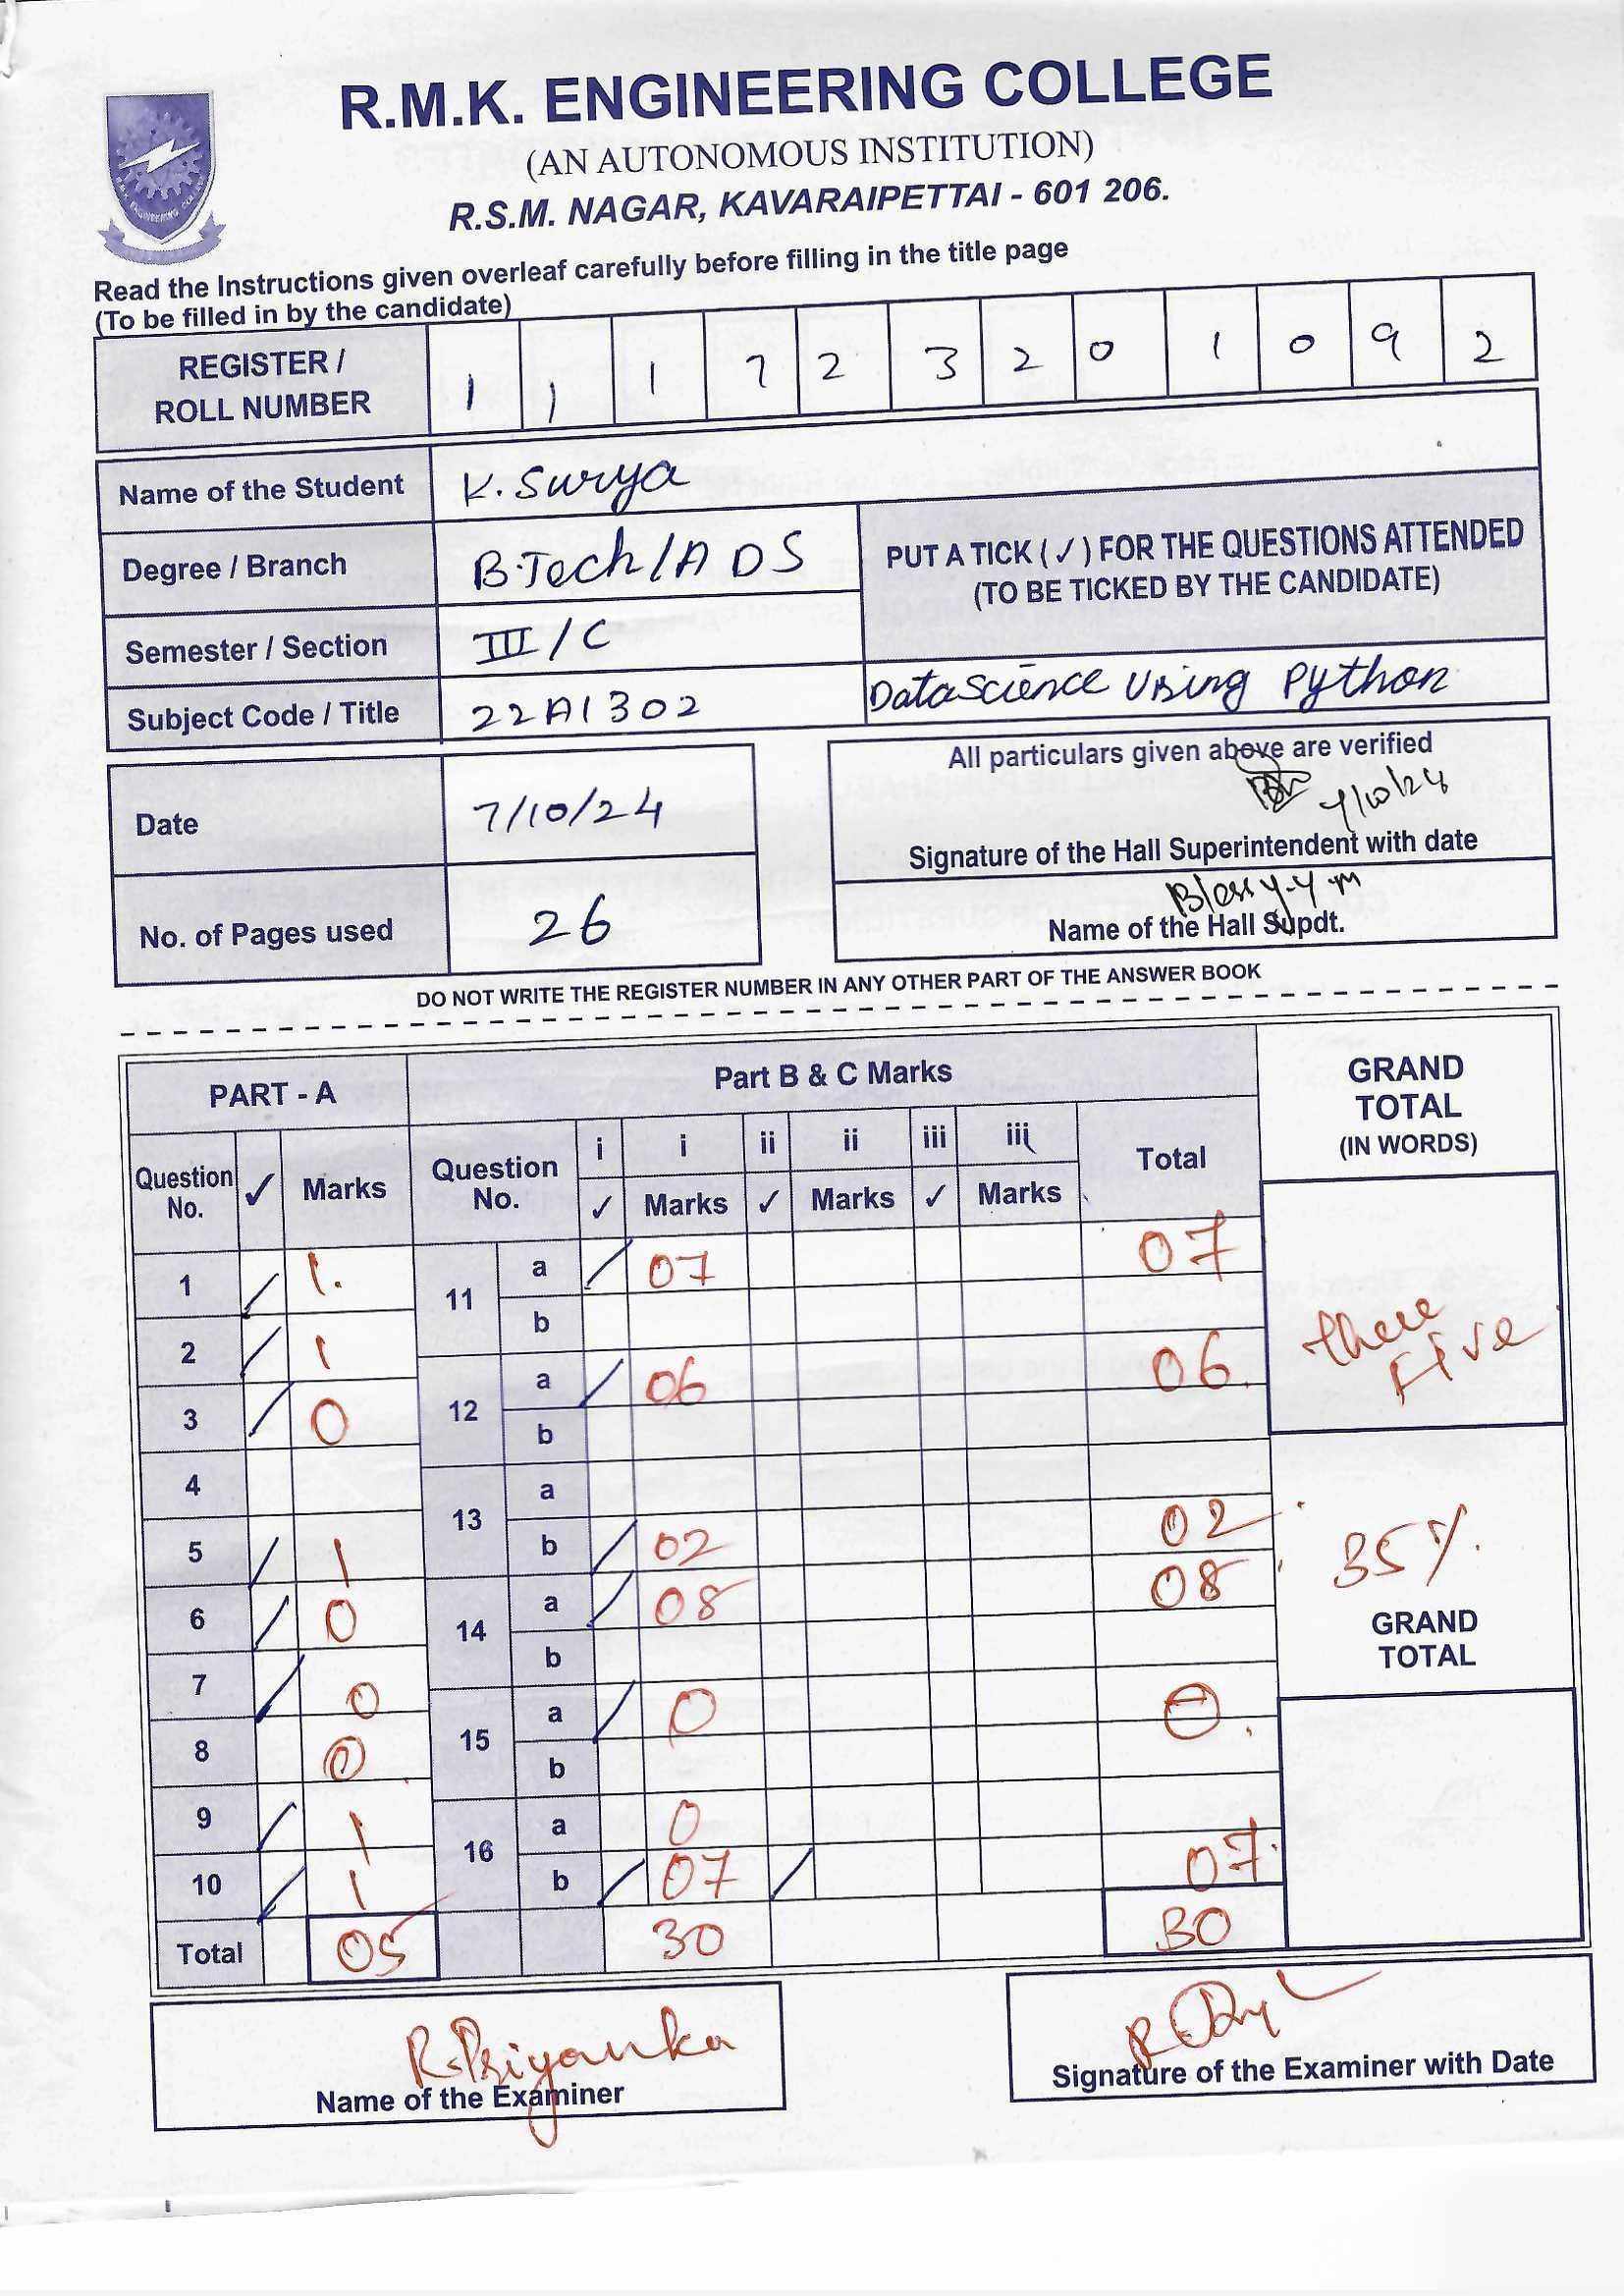 R.M.K. ENGINEERING COLLEGE
(AN AUTONOMOUS INSTITUTION)
R.S.M. NAGAR, KAVARAIPETTAI - 601 206.
Read the Instructions given overleaf carefully before filling in the title page
(To be filled in by the candidate)
REGISTER / ROLL NUMBER 1 1 1 7 2 3 2 0 1 0 9 2
Name of the Student K. Surya
Degree / Branch B.Tech/ADS
PUT A TICK (✓) FOR THE QUESTIONS ATTENDED
(TO BE TICKED BY THE CANDIDATE)
Semester / Section III/C
Subject Code / Title 22AI302 Datascience Using Python
Date 7/10/24
All particulars given above are verified
7/10/24
Signature of the Hall Superintendent with date
No. of Pages used 26
Blessy.Y.M
Name of the Hall Supdt.
DO NOT WRITE THE REGISTER NUMBER IN ANY OTHER PART OF THE ANSWER BOOK
PART - A Part B & C Marks GRAND TOTAL (IN WORDS)
Question No. ✓ Marks Question No. i ✓ i Marks ii ✓ ii Marks iii ✓ iii Marks Total
1 ✓ 1. 11 a ✓ 07 07
b
2 ✓ 1 there Five
12 a ✓ 06 06.
3 ✓ 0 b
4 13 a
5 ✓ 1 b ✓ 02 02
35%.
6 ✓ 0 14 a ✓ 08 08
GRAND TOTAL
b
7 ✓ 0 15 a ✓ 0 0.
8 0 b
9 ✓ 1 16 a 0
10 ✓ 1 b ✓ 07 ✓ 07.
Total 05 30 30
R.Priyanka
Name of the Examiner
Signature of the Examiner with Date